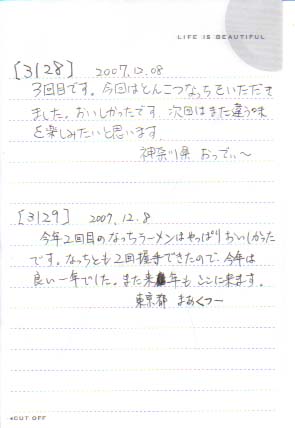 LIFE IS BEAUTIFUL
[3128] 2007.12.08
3回目です。今回はとんこつなっちをいただき
ました。おいしかったです 次回はまた違う味
を楽しみたいと思います
神奈川県 おっでぃ〜
[3129] 2007.12.8
今年2回目のなっちラーメンはやっぱりおいしかった
です。なっちとも2回握手できたので、今年は
良い一年でした。また来年も、ここに来ます。
東京都 まあくつ〜
CUT OFF